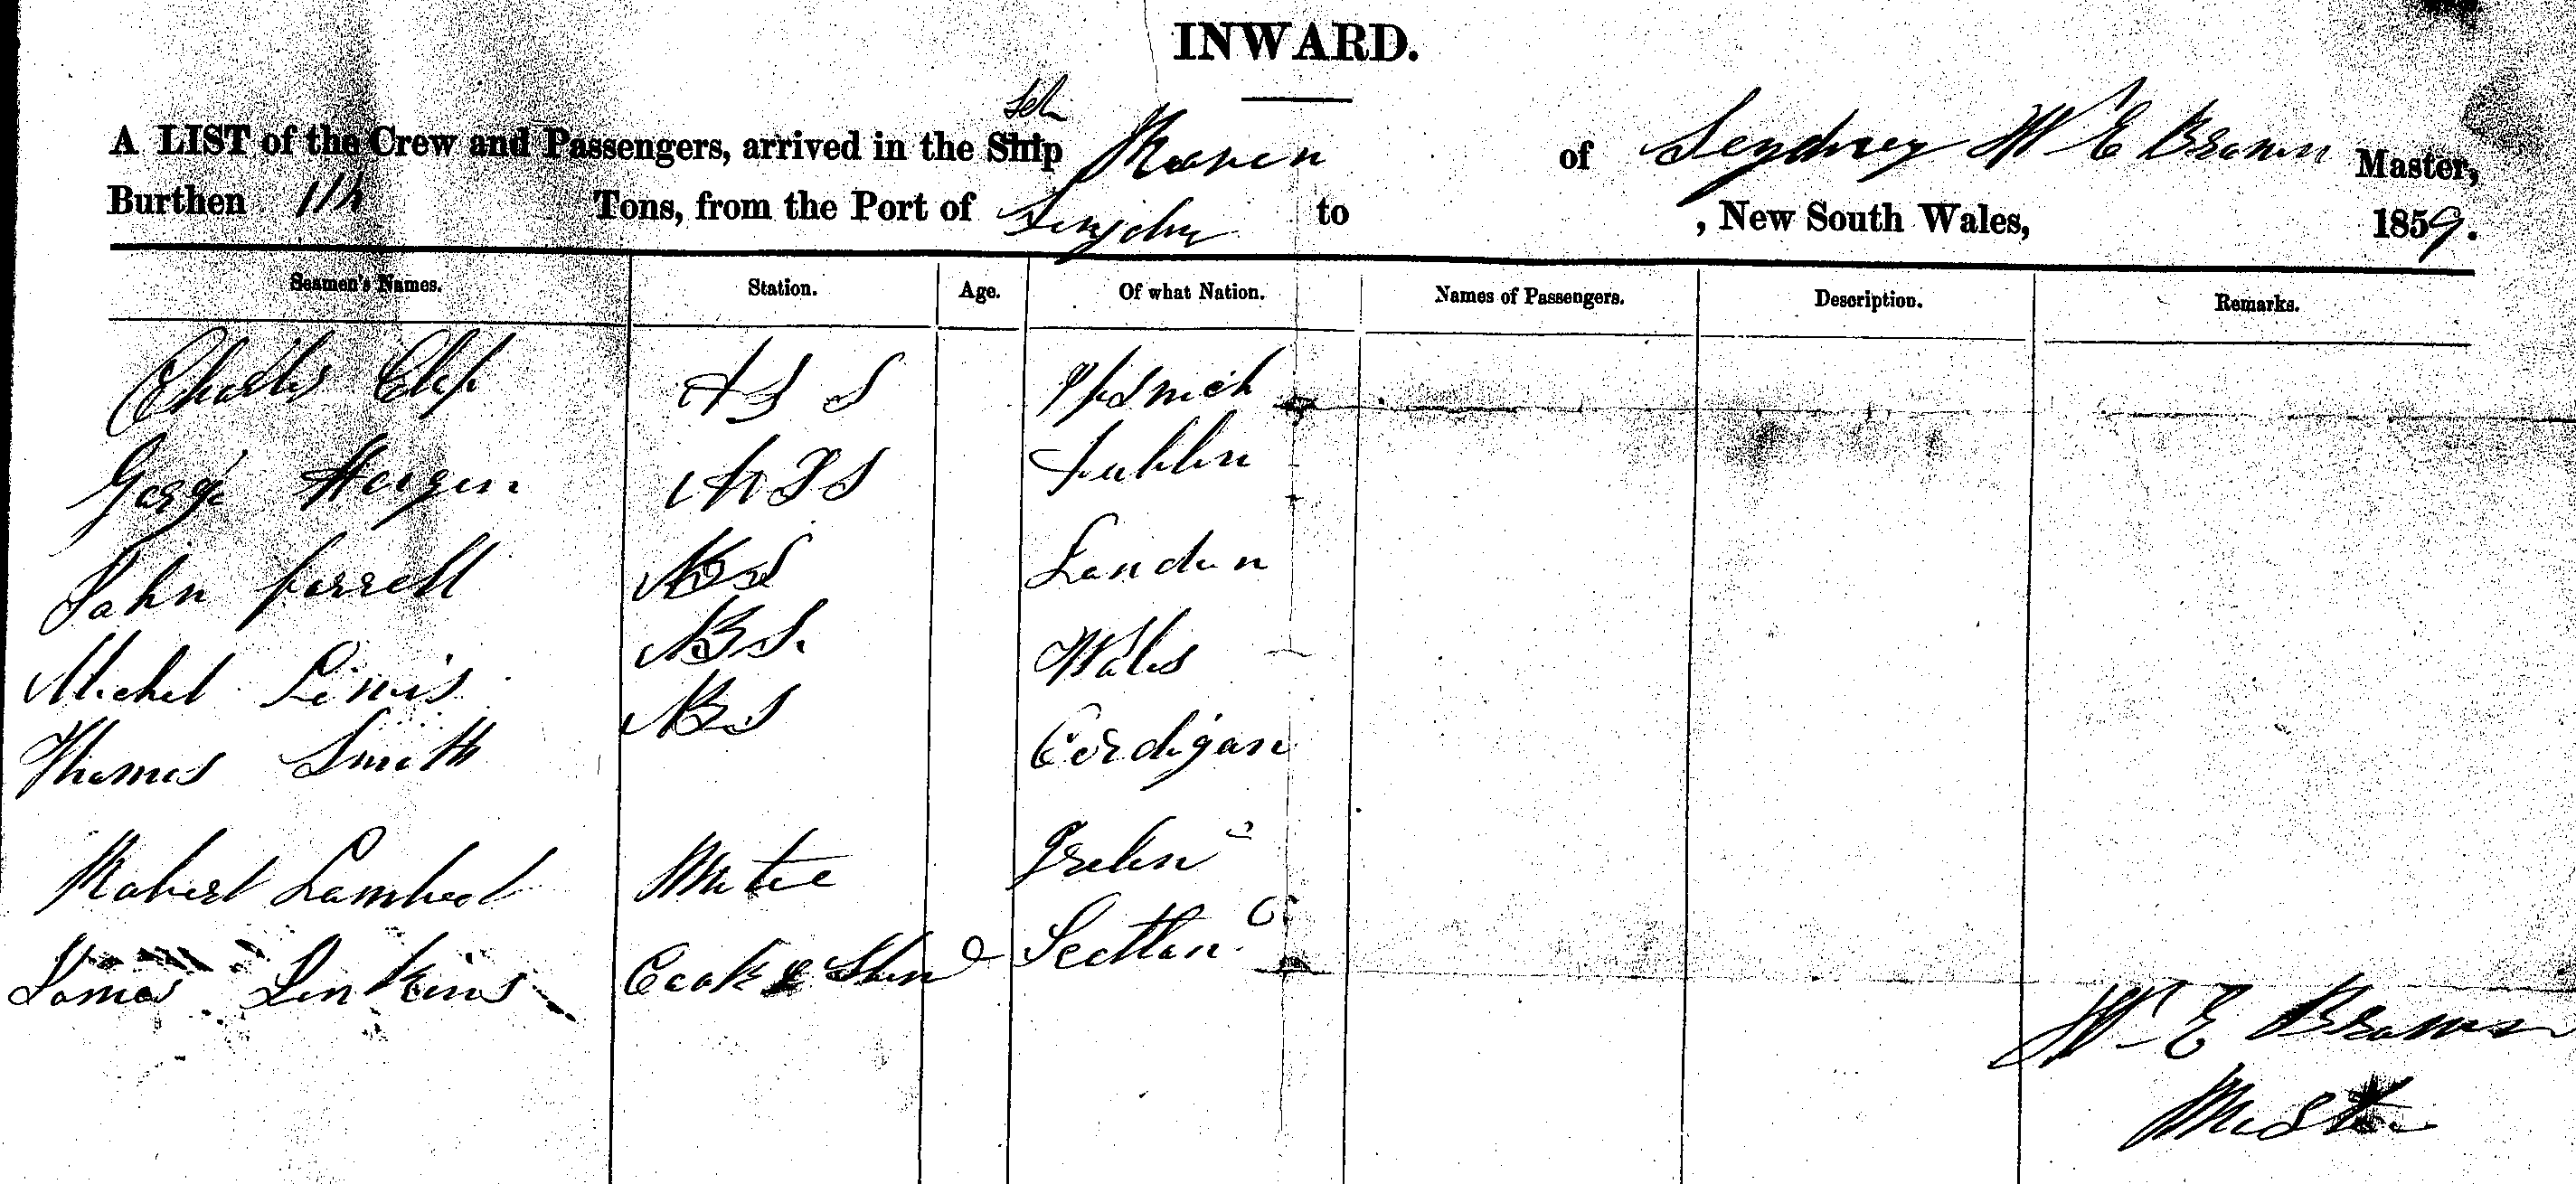 INWARD.
Sch
A LIST of the Crew and Passengers, arrived in the Ship Raven of Seydney W E Brown Master,
Burthen Tons, from the Port of to , New South Wales, 1859.
Seamen's Names. Station. Age. Of what Nation. Names of Passengers. Description. Remarks.
Charles A B S Ipswich
George A B S Dublin
John forrell A B S London
Michel Lewis A B S. Wales
Thomas Smith A B S Cordigan
Robert Lambert Mate
James Jenkins Cook &
W E Brown
Master